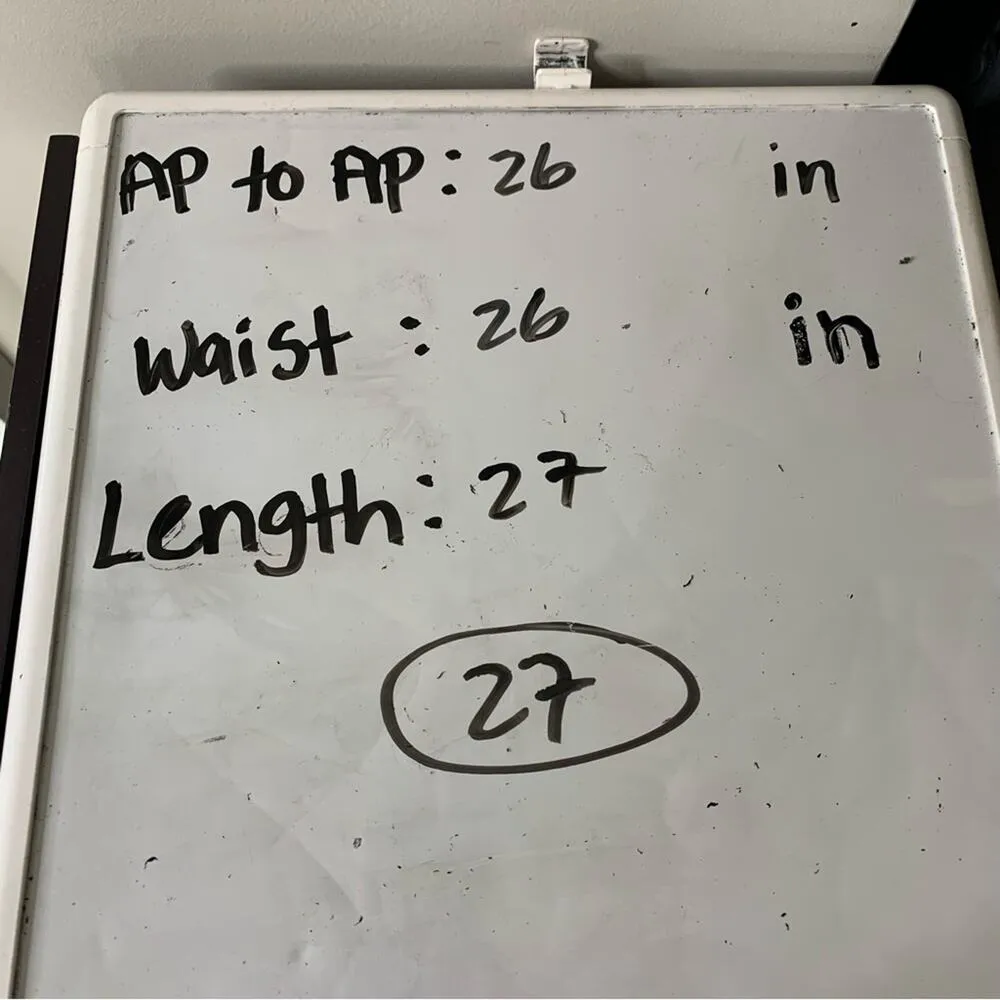 AP to AP: 26 in
Waist : 26 in
Length: 27
27